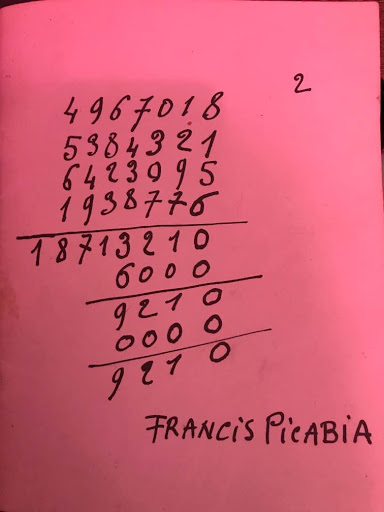 2
4967018
5384321
6423095
1938776
18713210
6000
9210
0000
9210
FRANCIS PICABIA